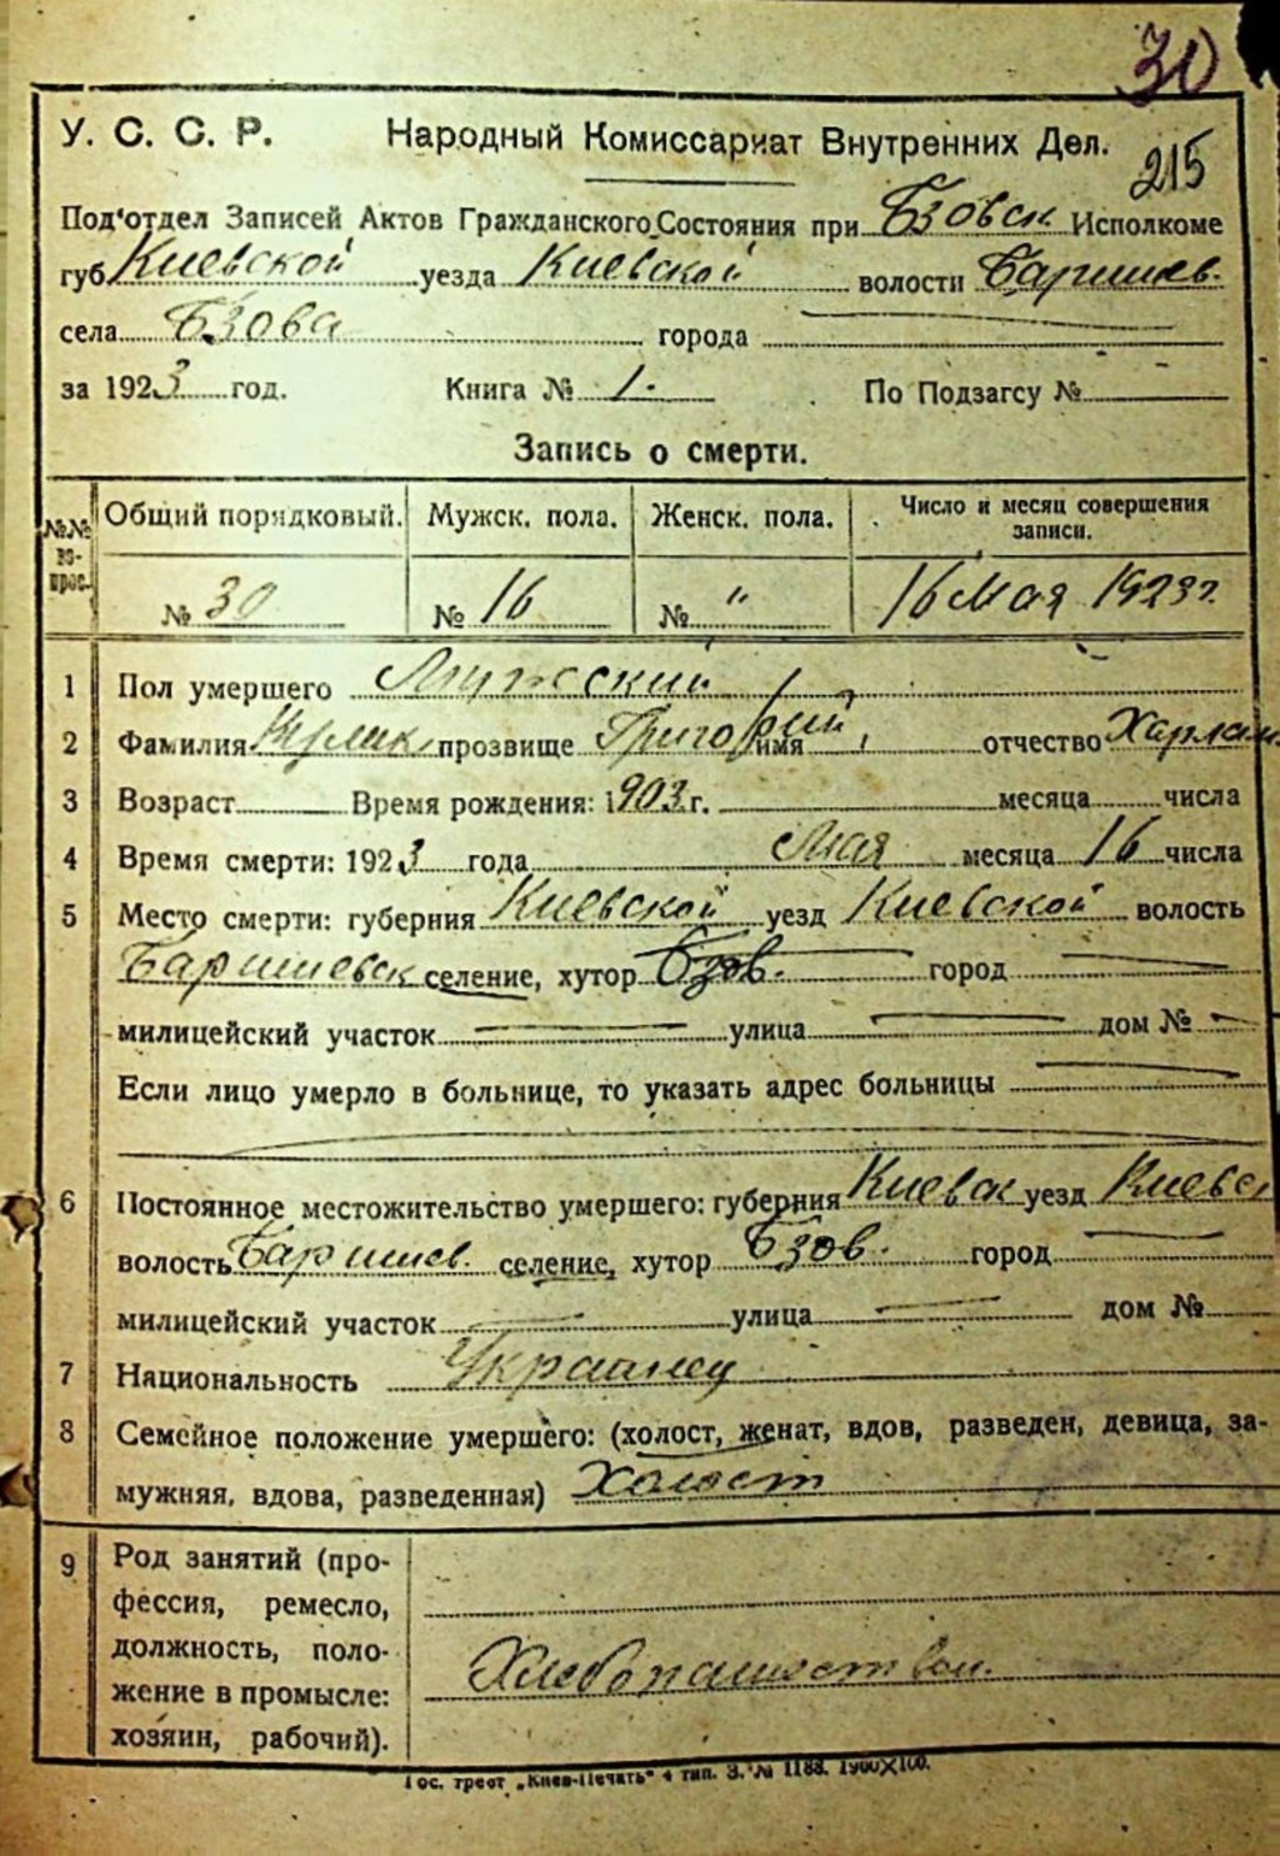 30
У. С. С. Р. Народный Комиссариат Внутренних Дел.
215
Под‘отдел Записей Актов Гражданского Состояния при Бзовск Исполкоме
губ Киевской уезда Киевской волости Баришев.
села Бзова города
за 1923 год. Книга № 1. По Подзагсу №
Запись о смерти.
№№ во-прос. Общий порядковый. Мужск. пола. Женск. пола. Число и месяц совершения записи.
№ 30 № 16 № " 16 Мая 1923 г.
1 Пол умершего Мужский
2 Фамилия прозвище Григорий имя отчество Харлам
3 Возраст Время рождения: 1903 г. месяца числа
4 Время смерти: 1923 года Мая месяца 16 числа
5 Место смерти: губерния Киевской уезд Киевской волость
Баришевск селение, хутор Бзов. город
милицейский участок улица дом №
Если лицо умерло в больнице, то указать адрес больницы
6 Постоянное местожительство умершего: губерния Киевск уезд Киевс
волость Баришев. селение, хутор Бзов. город
милицейский участок улица дом №
7 Национальность Украинец
8 Семейное положение умершего: (холост, женат, вдов, разведен, девица, за-
мужняя, вдова, разведенная) Холост
9 Род занятий (про-
фессия, ремесло,
должность, поло-
жение в промысле:
хозяин, рабочий).
Хлебопашеством.
Гос. трест „Киев-Печать“ 4 тип. З. № 1188. 1900×100.